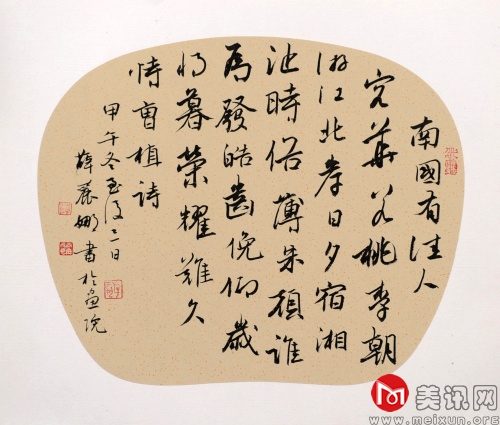 南國有佳人
容華若桃李朝
游江北岸日夕宿湘
沚時俗薄朱顏誰
為發皓齒俛仰歲
將暮榮耀難久
恃曹植詩
甲午冬至後二日
薛麗娜書於畫院
美讯网
www.meixun.org